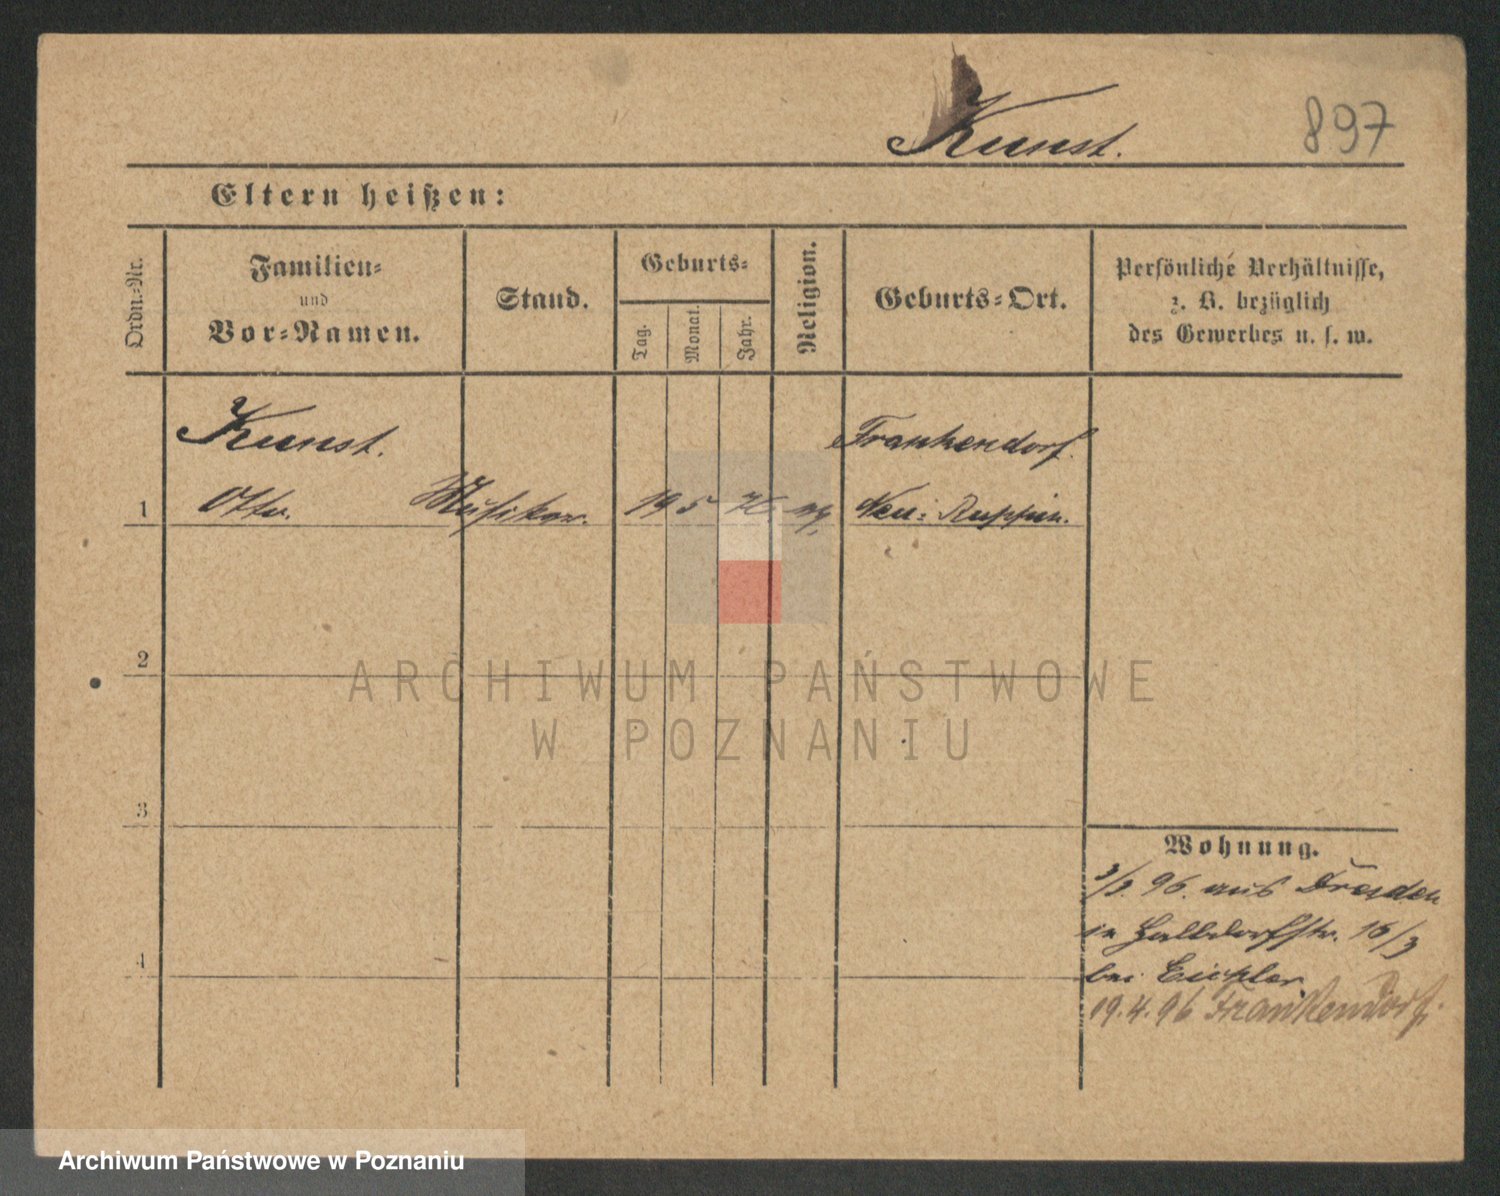 Kunst.
897
Eltern heißen:
Ordn.-Nr.
Familien-
und
Vor-Namen.
Stand.
Geburts-
Tag.
Monat.
Jahr.
Religion.
Geburts-Ort.
Persönliche Verhältnisse,
z. B. bezüglich
des Gewerbes u. s. w.
Kunst. Frankendorf.
1 Otto. Musiker. 19 5 76. Neu-Ruppin.
2
ARCHIWUM PAŃSTWOWE
W POZNANIU
3
Wohnung.
3/3. 96. aus Dresden
in Halbdorfstr. 16/3
4
bei Eichler
19.4.96 Frankendorf.
Archiwum Państwowe w Poznaniu